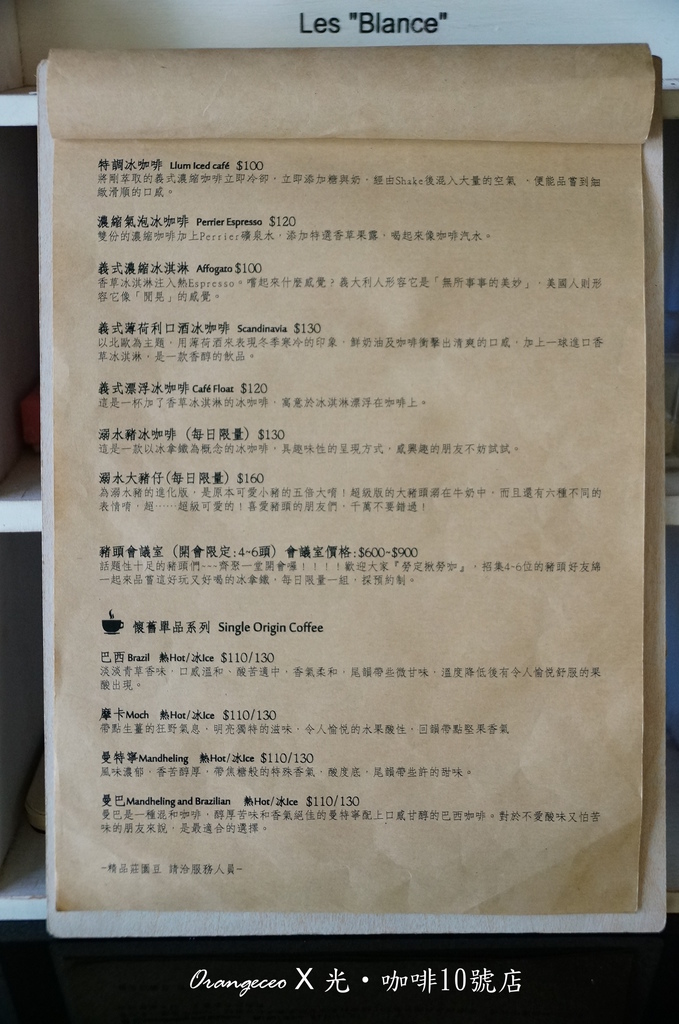 Les "Blance"
特調冰咖啡 Llum Iced café $100
將剛萃取的義式濃縮咖啡立即冷卻，立即添加糖與奶，經由Shake後混入大量的空氣，便能品嘗到細
緻滑順的口感。
濃縮氣泡冰咖啡 Perrier Espresso $120
雙份的濃縮咖啡加上Perrier礦泉水，添加特選香草果露，喝起來像咖啡汽水。
義式濃縮冰淇淋 Affogato $100
香草冰淇淋注入熱Espresso。嚐起來什麼感覺？義大利人形容它是「無所事事的美妙」，美國人則形
容它像「閒晃」的感覺。
義式薄荷利口酒冰咖啡 Scandinavia $130
以北歐為主題，用薄荷酒來表現冬季寒冷的印象，鮮奶油及咖啡衝擊出清爽的口感，加上一球進口香
草冰淇淋，是一款香醇的飲品。
義式漂浮冰咖啡 Café Float $120
這是一杯加了香草冰淇淋的冰咖啡，寓意於冰淇淋漂浮在咖啡上。
溺水豬冰咖啡 (每日限量) $130
這是一款以冰拿鐵為概念的冰咖啡，具趣味性的呈現方式，感興趣的朋友不妨試試。
溺水大豬仔(每日限量) $160
為溺水豬的進化版，是原本可愛小豬的五倍大唷！超級版的大豬頭溺在牛奶中，而且還有六種不同的
表情唷，超……超級可愛的！喜愛豬頭的朋友們，千萬不要錯過！
豬頭會議室 (開會限定:4~6頭) 會議室價格:$600~$900
話題性十足的豬頭們~~~齊聚一堂開會囉！！！！歡迎大家『勞定揪勞咖』，招集4~6位的豬頭好友綿
一起來品嘗這好玩又好喝的冰拿鐵，每日限量一組，採預約制。
懷舊單品系列 Single Origin Coffee
巴西 Brazil 熱Hot/冰Ice $110/130
淡淡青草香味，口感溫和、酸苦適中，香氣柔和，尾韻帶些微甘味，溫度降低後有令人愉悅舒服的果
酸出現。
摩卡Moch 熱Hot/冰Ice $110/130
帶點生薑的狂野氣息，明亮獨特的滋味，令人愉悅的水果酸性，回韻帶點堅果香氣
曼特寧Mandheling 熱Hot/冰Ice $110/130
風味濃郁，香苦醇厚，帶焦糖般的特殊香氣，酸度底，尾韻帶些許的甜味。
曼巴Mandheling and Brazilian 熱Hot/冰Ice $110/130
曼巴是一種混和咖啡，醇厚苦味和香氣絕佳的曼特寧配上口感甘醇的巴西咖啡。對於不愛酸味又怕苦
味的朋友來說，是最適合的選擇。
-精品莊園豆 請洽服務人員-
Orangeceo X 光·咖啡10號店